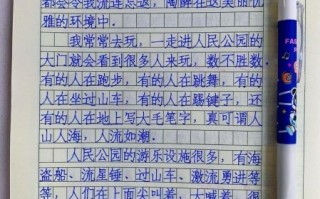 都会令我流连忘返，陶醉在这美丽优
雅的环境中。
我常常去玩，一走进人民公园的
大门就会看到很多人来玩，数不胜数。
有的人在跑步，有的人在跳舞，有的
人在坐过山车，有的人在踢毽子，还
有的人在地上写大毛笔字，真可谓人
山人海，人流如潮。
人民公园的游乐设施很多，有海
盗船、流星锤、过山车、激流勇进等
等，人们在上面尖叫着，大喊着，很